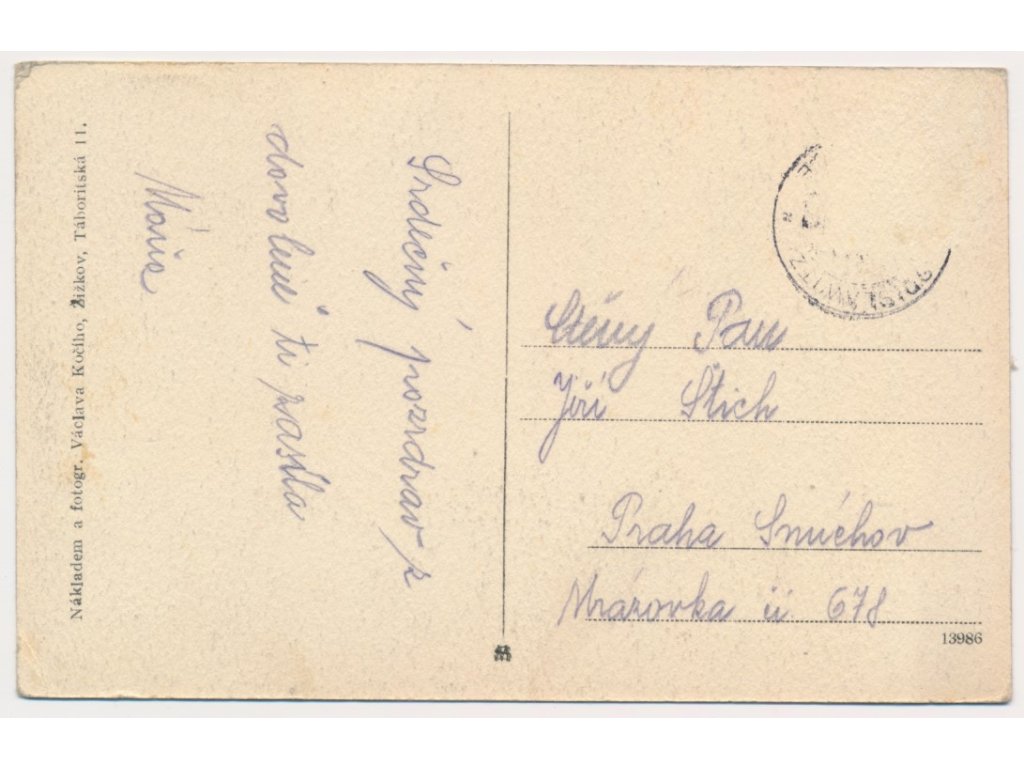 Nákladem a fotogr. Václava Kočího, Žižkov, Táboritská 11.
Srdečný pozdrav z
dovolené ti zasíla
Mánia
Ctěný Pan
Jiří Štich
Praha Smíchov
Mrázovka ú 678
13986